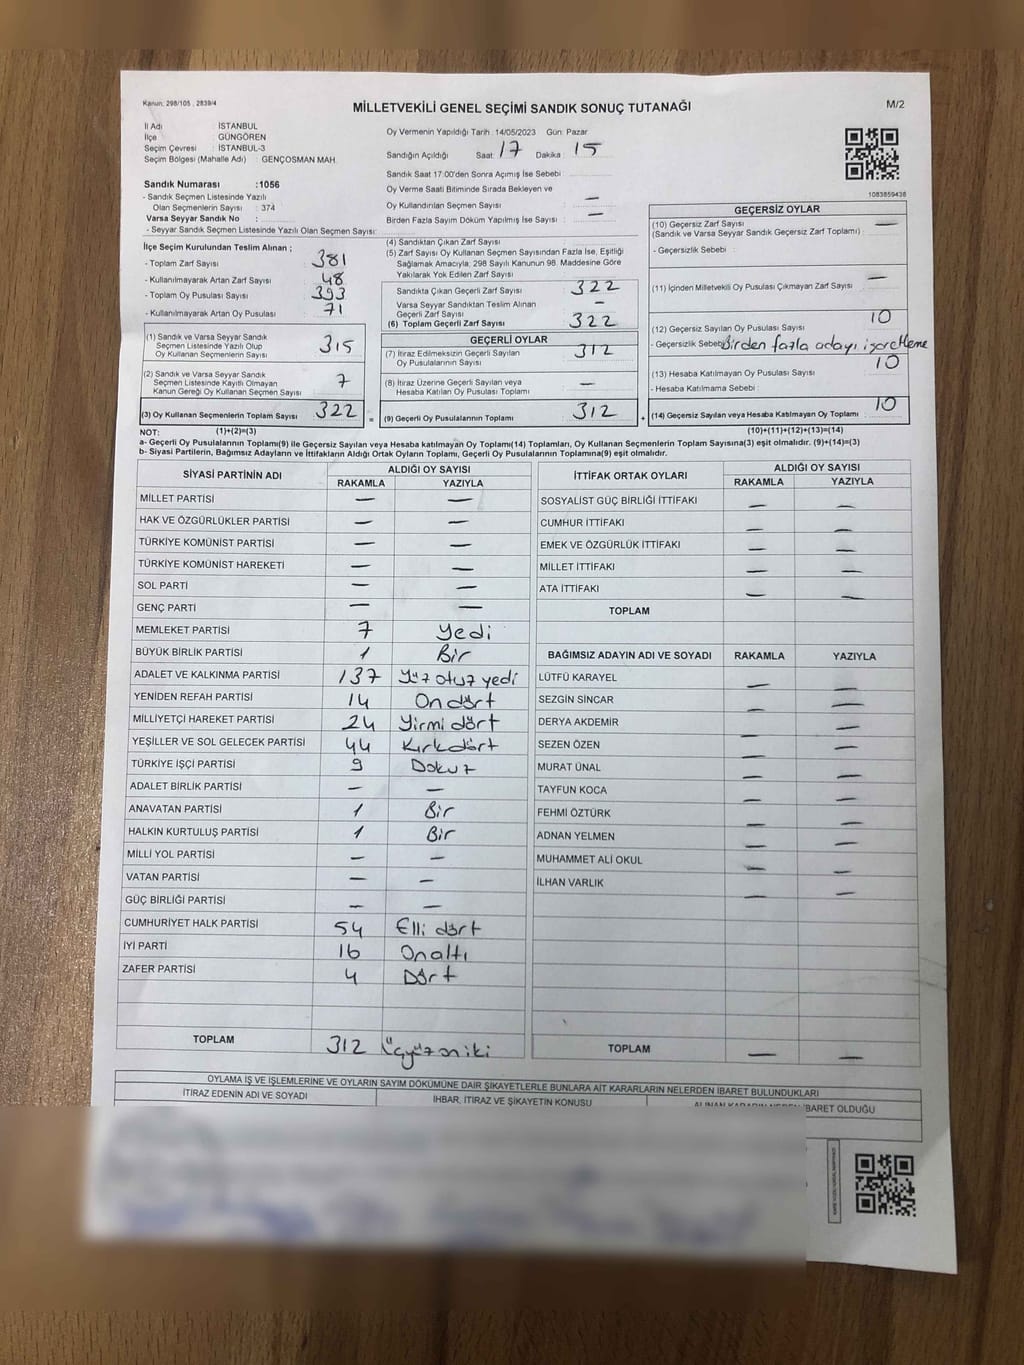 Kanun, 298/105 , 2839/4
MİLLETVEKİLİ GENEL SEÇİMİ SANDIK SONUÇ TUTANAĞI
M/2
İl Adı : İSTANBUL
İlçe : GÜNGÖREN
Seçim Çevresi : İSTANBUL-3
Seçim Bölgesi (Mahalle Adı) : GENÇOSMAN MAH.
Sandık Numarası :1056
- Sandık Seçmen Listesinde Yazılı
Olan Seçmenlerin Sayısı : 374
Varsa Seyyar Sandık No :
- Seyyar Sandık Seçmen Listesinde Yazılı Olan Seçmen Sayısı:
Oy Vermenin Yapıldığı Tarih: 14/05/2023 Gün: Pazar
Sandığın Açıldığı Saat: 17 Dakika : 15
Sandık Saat 17:00'den Sonra Açımış İse Sebebi :
Oy Verme Saati Bitiminde Sırada Bekleyen ve
Oy Kullandırılan Seçmen Sayısı : —
Birden Fazla Sayım Döküm Yapılmış İse Sayısı : —
1083859438
İlçe Seçim Kurulundan Teslim Alınan ;
- Toplam Zarf Sayısı : 381
- Kullanılmayarak Artan Zarf Sayısı : 48
- Toplam Oy Pusulası Sayısı : 393
- Kullanılmayarak Artan Oy Pusulası : 71
(1) Sandık ve Varsa Seyyar Sandık
Seçmen Listesinde Yazılı Olup
Oy Kullanan Seçmenlerin Sayısı : 315
(2) Sandık ve Varsa Seyyar Sandık
Seçmen Listesinde Kayıtlı Olmayan
Kanun Gereği Oy Kullanan Seçmen Sayısı : 7
(3) Oy Kullanan Seçmenlerin Toplam Sayısı : 322
(1)+(2)=(3)
(4) Sandıktan Çıkan Zarf Sayısı :
(5) Zarf Sayısı Oy Kullanan Seçmen Sayısından Fazla İse, Eşitliği
Sağlamak Amacıyla, 298 Sayılı Kanunun 98. Maddesine Göre
Yakılarak Yok Edilen Zarf Sayısı :
Sandıkta Çıkan Geçerli Zarf Sayısı : 322
Varsa Seyyar Sandıktan Teslim Alınan
Geçerli Zarf Sayısı : —
(6) Toplam Geçerli Zarf Sayısı : 322
GEÇERLİ OYLAR
(7) İtiraz Edilmeksizin Geçerli Sayılan
Oy Pusulalarının Sayısı : 312
(8) İtiraz Üzerine Geçerli Sayılan veya
Hesaba Katılan Oy Pusulası Toplamı : —
= (9) Geçerli Oy Pusulalarının Toplamı : 312
GEÇERSİZ OYLAR
(10) Geçersiz Zarf Sayısı —
(Sandık ve Varsa Seyyar Sandık Geçersiz Zarf Toplamı) :
- Geçersizlik Sebebi :
(11) İçinden Milletvekili Oy Pusulası Çıkmayan Zarf Sayısı : —
(12) Geçersiz Sayılan Oy Pusulası Sayısı : 10
- Geçersizlik Sebebi : Birden fazla adayı işaretleme
(13) Hesaba Katılmayan Oy Pusulası Sayısı : 10
- Hesaba Katılmama Sebebi :
+ (14) Geçersiz Sayılan veya Hesaba Katılmayan Oy Toplamı : 10
(10)+(11)+(12)+(13)=(14)
NOT:
a- Geçerli Oy Pusulalarının Toplamı(9) ile Geçersiz Sayılan veya Hesaba katılmayan Oy Toplamı(14) Toplamları, Oy Kullanan Seçmenlerin Toplam Sayısına(3) eşit olmalıdır. (9)+(14)=(3)
b- Siyasi Partilerin, Bağımsız Adayların ve İttifakların Aldığı Ortak Oyların Toplamı, Geçerli Oy Pusulalarının Toplamına(9) eşit olmalıdır.
SİYASİ PARTİNİN ADI ALDIĞI OY SAYISI
RAKAMLA YAZIYLA
MİLLET PARTİSİ — —
HAK VE ÖZGÜRLÜKLER PARTİSİ — —
TÜRKİYE KOMÜNİST PARTİSİ — —
TÜRKİYE KOMÜNİST HAREKETİ — —
SOL PARTİ — —
GENÇ PARTİ — —
MEMLEKET PARTİSİ 7 Yedi
BÜYÜK BİRLİK PARTİSİ 1 Bir
ADALET VE KALKINMA PARTİSİ 137 Yüz otuz yedi
YENİDEN REFAH PARTİSİ 14 On dört
MİLLİYETÇİ HAREKET PARTİSİ 24 Yirmi dört
YEŞİLLER VE SOL GELECEK PARTİSİ 44 Kırkdört
TÜRKİYE İŞÇİ PARTİSİ 9 Dokuz
ADALET BİRLİK PARTİSİ — —
ANAVATAN PARTİSİ 1 Bir
HALKIN KURTULUŞ PARTİSİ 1 Bir
MİLLİ YOL PARTİSİ — —
VATAN PARTİSİ — —
GÜÇ BİRLİĞİ PARTİSİ — —
CUMHURİYET HALK PARTİSİ 54 Elli dört
İYİ PARTİ 16 Onaltı
ZAFER PARTİSİ 4 Dört
TOPLAM 312 Üçyüzoniki
İTTİFAK ORTAK OYLARI ALDIĞI OY SAYISI
RAKAMLA YAZIYLA
SOSYALİST GÜÇ BİRLİĞİ İTTİFAKI — —
CUMHUR İTTİFAKI — —
EMEK VE ÖZGÜRLÜK İTTİFAKI — —
MİLLET İTTİFAKI — —
ATA İTTİFAKI — —
TOPLAM
BAĞIMSIZ ADAYIN ADI VE SOYADI RAKAMLA YAZIYLA
LÜTFÜ KARAYEL — —
SEZGİN SİNCAR — —
DERYA AKDEMİR — —
SEZEN ÖZEN — —
MURAT ÜNAL — —
TAYFUN KOCA — —
FEHMİ ÖZTÜRK — —
ADNAN YELMEN — —
MUHAMMET ALİ OKUL — —
İLHAN VARLIK — —
TOPLAM — —
OYLAMA İŞ VE İŞLEMLERİNE VE OYLARIN SAYIM DÖKÜMÜNE DAİR ŞİKAYETLERLE BUNLARA AİT KARARLARIN NELERDEN İBARET BULUNDUKLARI
İTİRAZ EDENİN ADI VE SOYADI
İHBAR, İTİRAZ VE ŞİKAYETİN KONUSU
ALINAN KARARIN NEDEN İBARET OLDUĞU